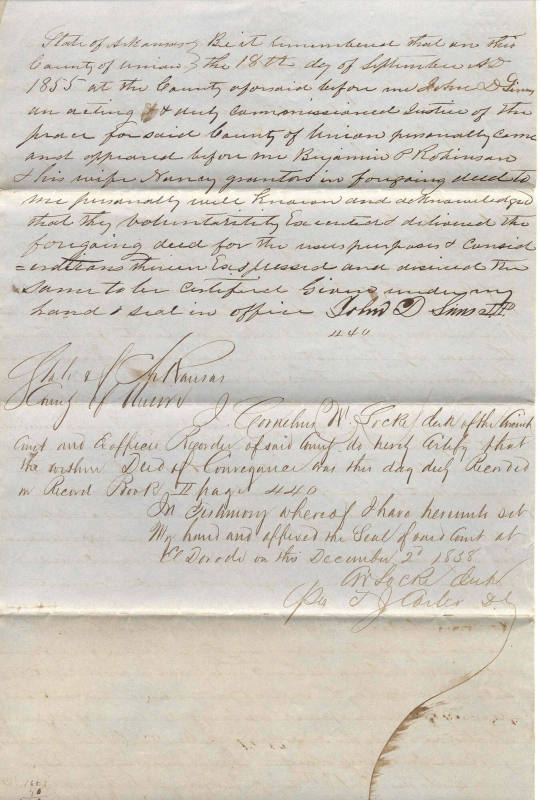 State of Arkansas } Be it remembered that on this
County of Union } the 18th day of September AD
1855 at the County aforsaid before me John D Sims
an acting & duly commissioned Justice of the
peace for said County of Union personally came
and appeared before me Benjamin P Robinson
& his wife Nancy grantors in foregoing deed to
me personally well known and acknowledged
that they voluntarility Executed & delivered the
foregoing deed for the uses purposes & consid
=erations therein Expressed and desired the
same to be certified Given under my
hand & seal in office John D Sims
440
State of Arkansas
County of Union I Cornelius W Locke clerk of the Circuit
Court and Exofficio Recorder of said County do hereby Certify that
the within Deed of Conveyance was this day duly Recorded
in Record Book II page 440
In Testimony whereof I have hereunto set
My hand and affixed the Seal of said Court at
El Dorado on this December 2d 1858
CW Locke Clerk
Per T J Carter D.C